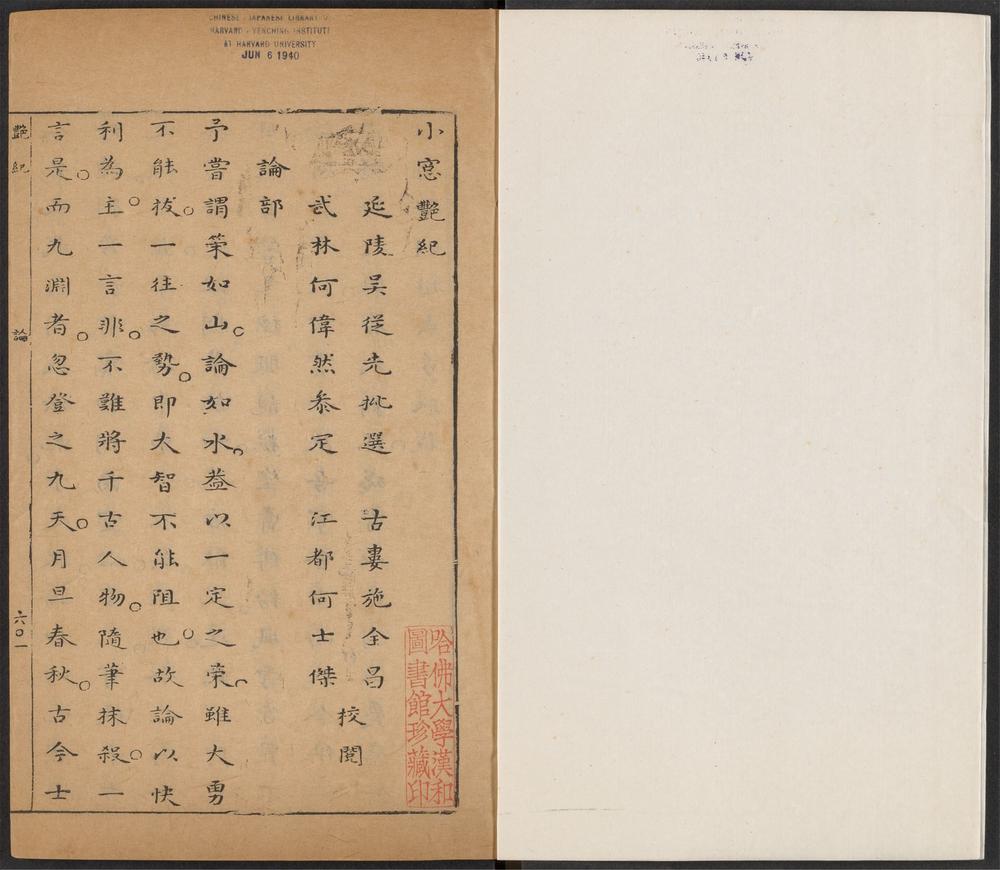 CHINESE - JAPANESE LIBRARY
HARVARD - YENCHING INSTITUTE
AT HARVARD UNIVERSITY
JUN 6 1940
小窓艷紀
延陵吴從先批選 古婁施全昌
武林何偉然叅定 江都何士傑
校閱
論部
予嘗謂策如山論如水葢以一定之策雖大勇
不能拔一往之勢即大智不能阻也故論以快
利為主一言非不難將千古人物隨筆抹殺一
言是而九淵者忽登之九天月旦春秋古今士
艷紀
論
六〇一
哈佛大學漢和
圖書館珍藏印